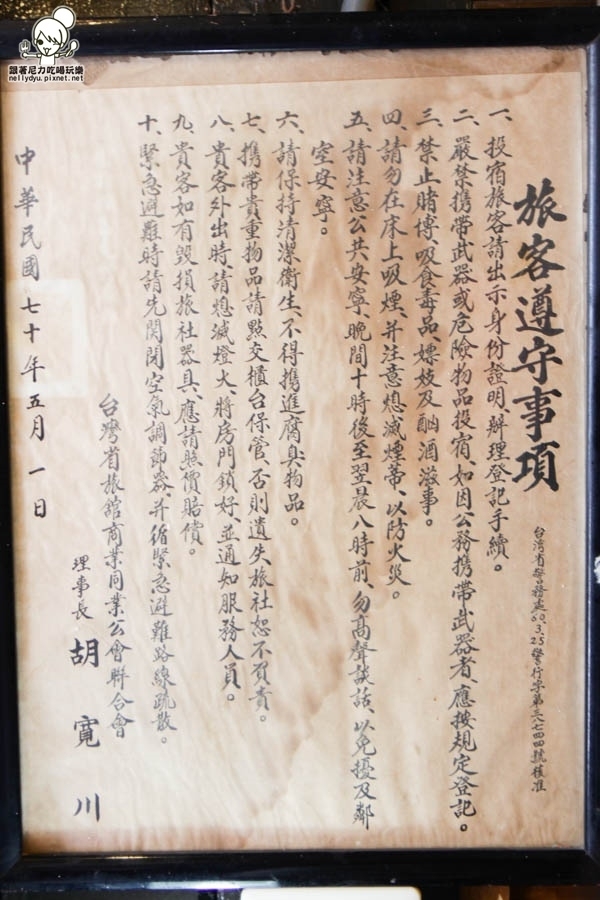 旅客遵守事項
台湾省警務處60.3.25警行字第三八七四四號核准
一、投宿旅客請出示身份證明、辦理登記手續。
二、嚴禁携帶武器或危險物品投宿、如因公務携帶武器者、應按規定登記。
三、禁止賭博、吸食毒品、嫖妓及酗酒滋事。
四、請勿在床上吸煙、并注意熄滅煙蒂、以防火災。
五、請注意公共安寧、晚間十時後至翌晨八時前、勿高聲談話、以免擾及鄰
室安寧。
六、請保持清潔衛生、不得携進腐臭物品。
七、携帶貴重物品請點交櫃台保管、否則遺失旅社恕不負責。
八、貴客外出時、請熄滅燈火、將房門鎖好、並通知服務人員。
九、貴客如有毀損旅社器具、應請照價賠償。
十、緊急避難時請先関閉空氣調節器、并循緊急避難路線疏散。
台灣省旅館商業同業公會聯合會
理事長 胡寬川
中華民國七十年五月一日
跟著尼力吃喝玩樂
nellydyu.pixnet.net